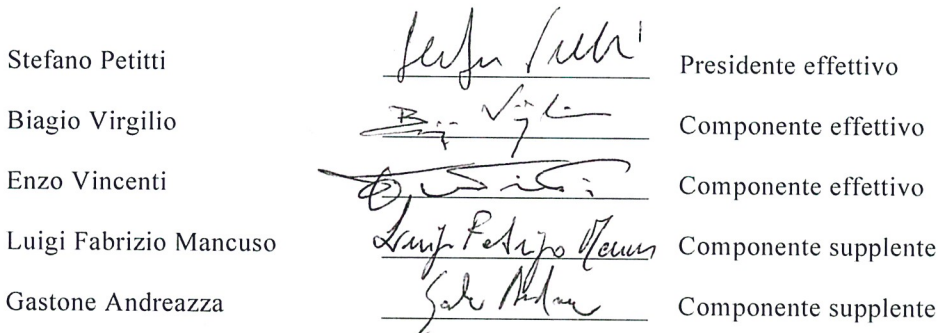 Stefano Petitti Presidente effettivo
Biagio Virgilio Componente effettivo
Enzo Vincenti Componente effettivo
Luigi Fabrizio Mancuso Componente supplente
Gastone Andreazza Componente supplente